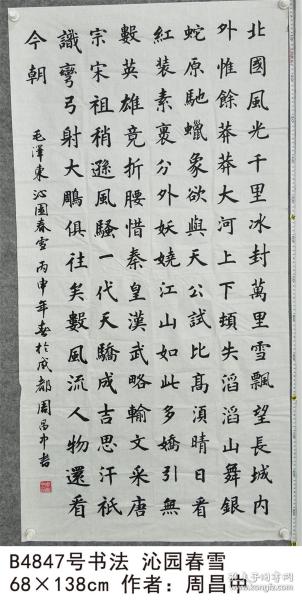 北國風光千里冰封萬里雪飄望長城内
外惟餘莽莽大河上下頓失滔滔山舞銀
蛇原馳蠟象欲與天公試比高須晴日看
紅裝素裹分外妖嬈江山如此多嬌引無
數英雄竟折腰惜秦皇漢武略輸文采唐
宗宋祖稍遜風騷一代天驕成吉思汗祇
識彎弓射大鵰俱往矣數風流人物還看
今朝 毛澤東沁園春雪丙申年春於成都周昌中書
B4847号书法 沁园春雪
68×138cm 作者：周昌中